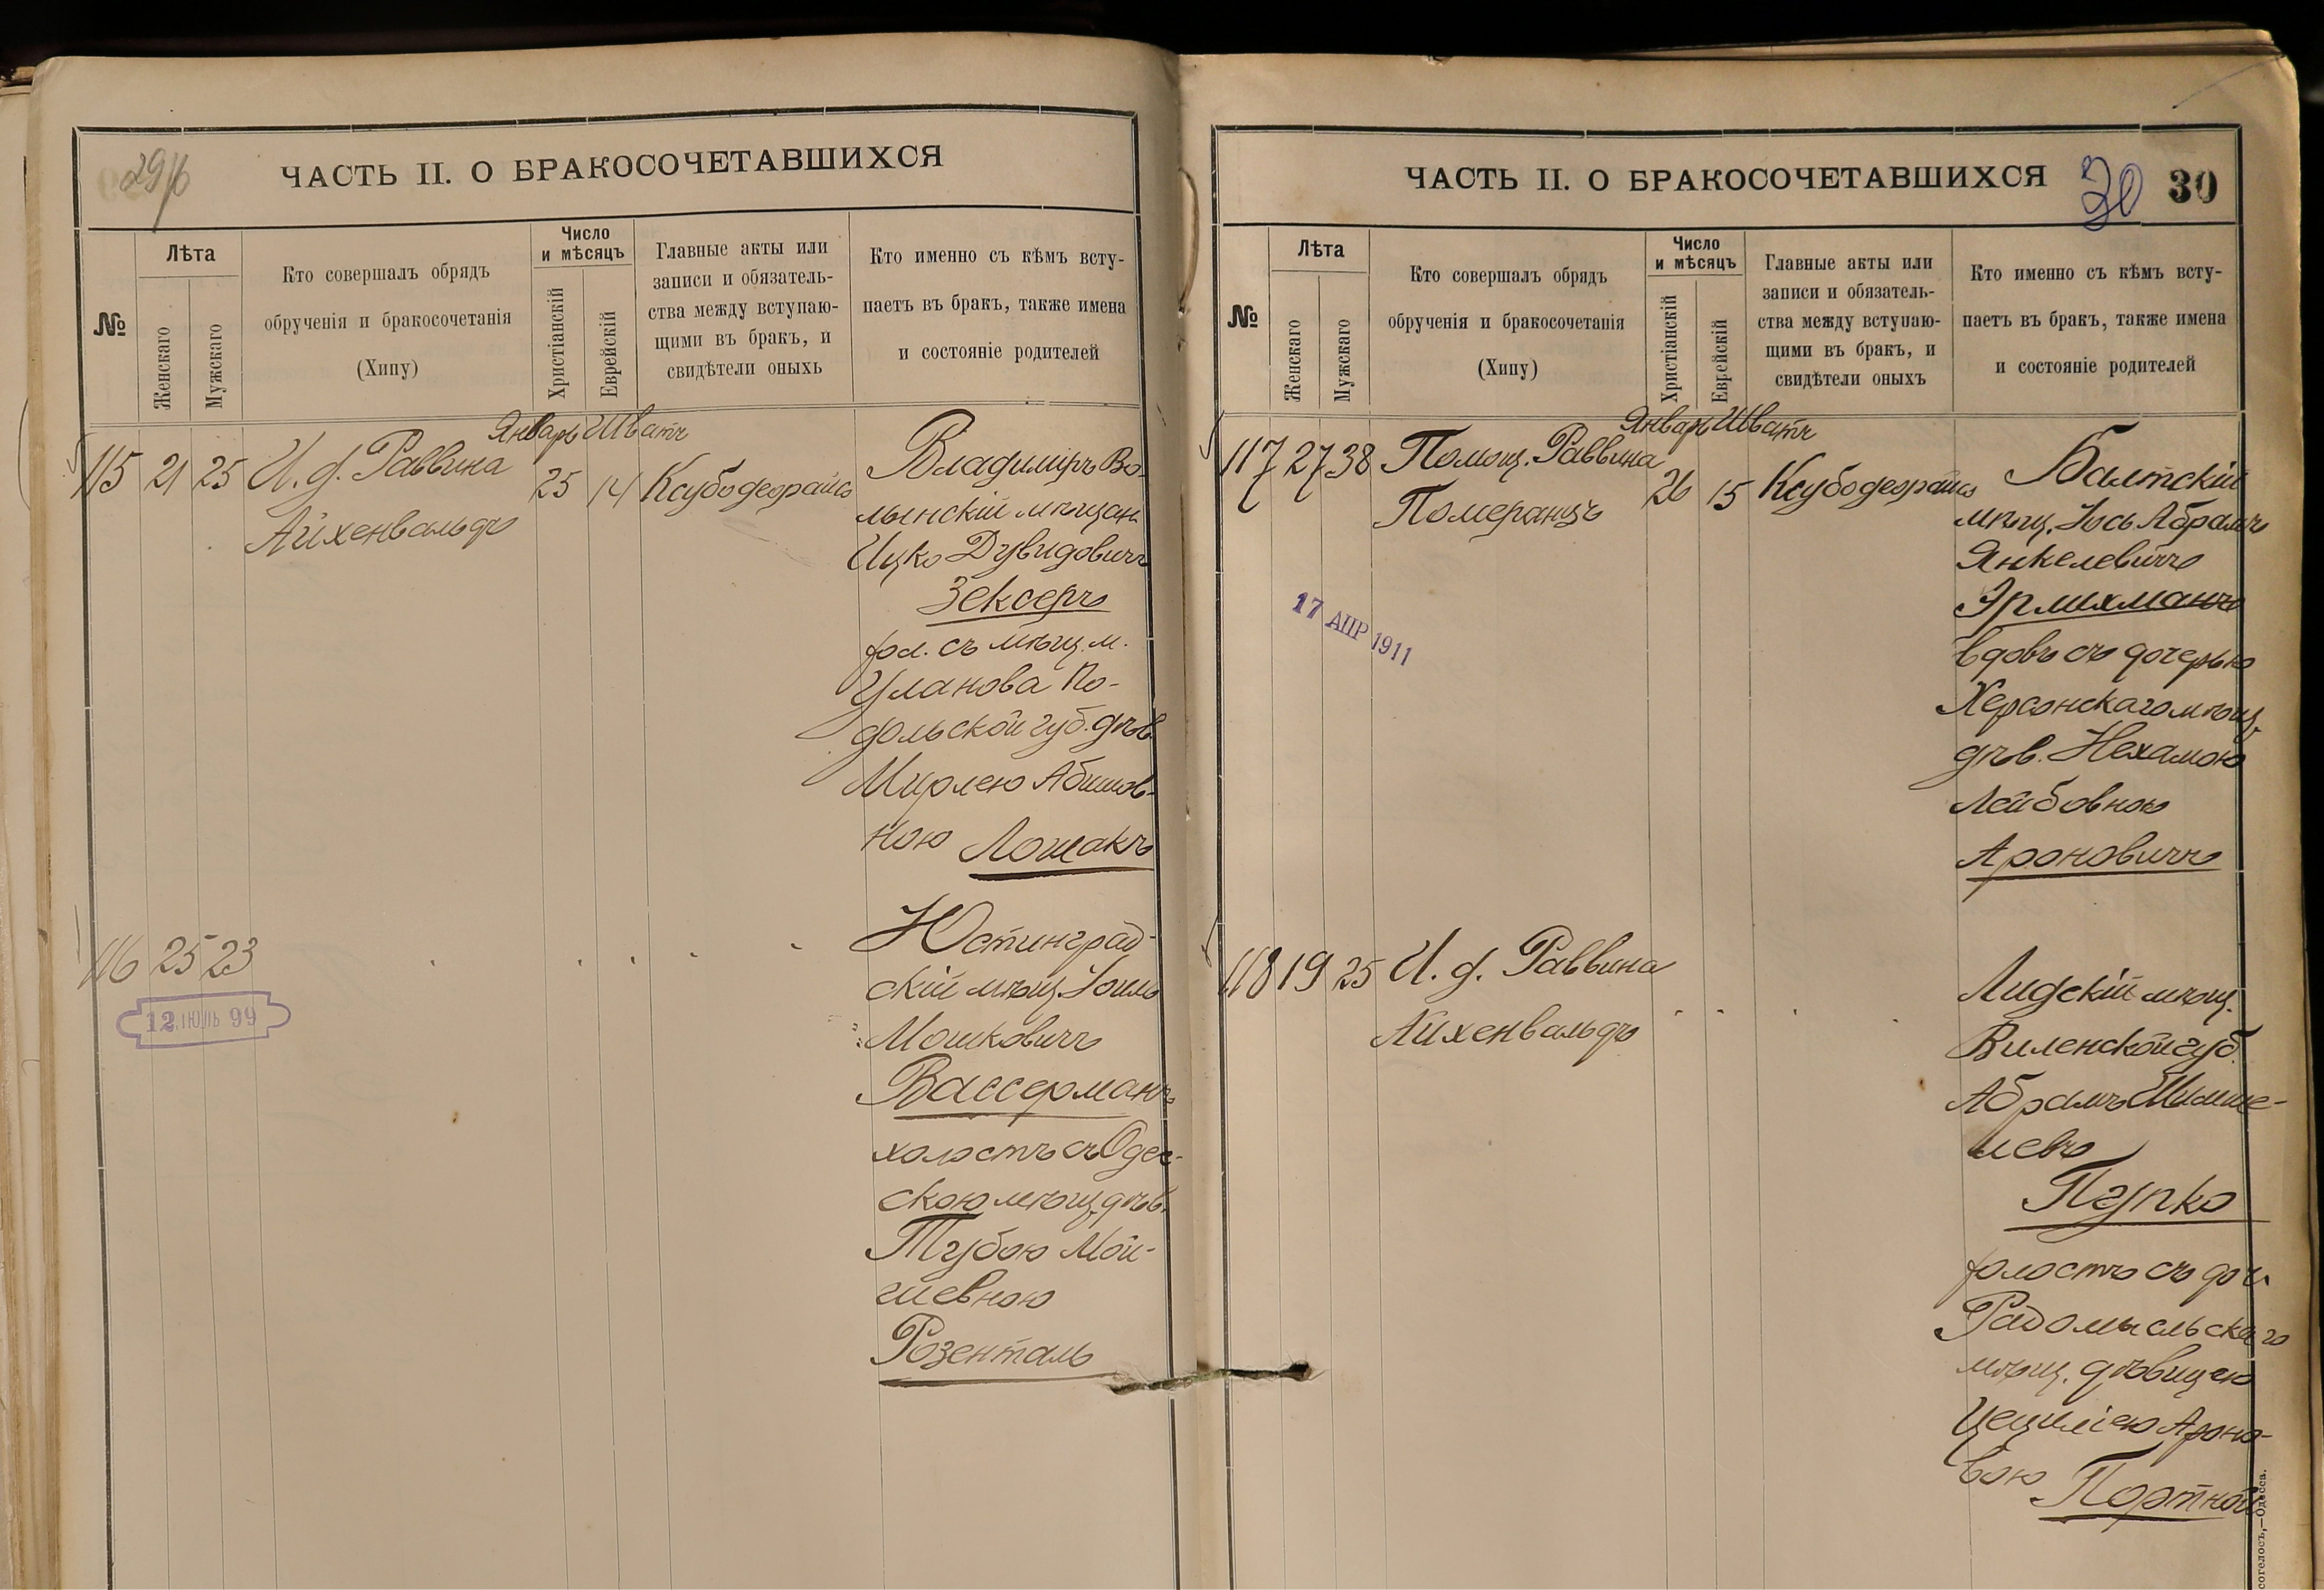 29об
ЧАСТЬ II. О БРАКОСОЧЕТАВШИХСЯ
№
Лѣта
Женскаго
Мужскаго
Кто совершалъ обрядъ
обрученія и бракосочетанія
(Хипу)
Число
и мѣсяцъ
Христіанскій
Еврейскій
Главные акты или
записи и обязатель-
ства между вступаю-
щими въ бракъ, и
свидѣтели оныхъ
Кто именно съ кѣмъ всту-
паетъ въ бракъ, также имена
и состояніе родителей
Январь Шватъ
115 21 25 И. д. Раввина 25 14 Ксубодеорайсо
Айхенвальдъ
Владимиръ Во-
лынскій мѣщан
Ицко Дувидовичъ
Зексеръ
хол. съ мѣщ. м.
Уланова По-
дольской губ. дѣв.
Мирлею Абишов-
ною Лошакъ
116 25 23
12 ІЮЛЬ 99
Юстинград-
скій мѣщ. Іоиль
Мошковичъ
Вассерманъ
холостъ съ Одес-
скою мѣщ. дѣв.
Тубою Мои-
сіевною
Розенталь
ЧАСТЬ II. О БРАКОСОЧЕТАВШИХСЯ
30 30
№
Лѣта
Женскаго
Мужскаго
Кто совершалъ обрядъ
обрученія и бракосочетанія
(Хипу)
Число
и мѣсяцъ
Христіанскій
Еврейскій
Главные акты или
записи и обязатель-
ства между вступаю-
щими въ бракъ, и
свидѣтели оныхъ
Кто именно съ кѣмъ всту-
паетъ въ бракъ, также имена
и состояніе родителей
Январь Шватъ
117 27 38 Помощ. Раввина 26 15 Ксубодеорайсо
Померанцъ
17 АПР 1911
Балтскій
мѣщ. Іось Абрамъ
Янкелевичъ
Эрлихманъ
вдовъ съ дочерью
Херсонскаго мѣщ.
дѣв. Нехамою
Лейбовною
Ароновичъ
118 19 25 И. д. Раввина
Айхенвальдъ
Лидскій мѣщ.
Виленской губ.
Абрамъ Шимше-
левъ
Пупко
холостъ съ доч.
Радомысльскаго
мѣщ. дѣвицею
Цециліею Ароно-
вою Портной
согелосъ,—Одесса.